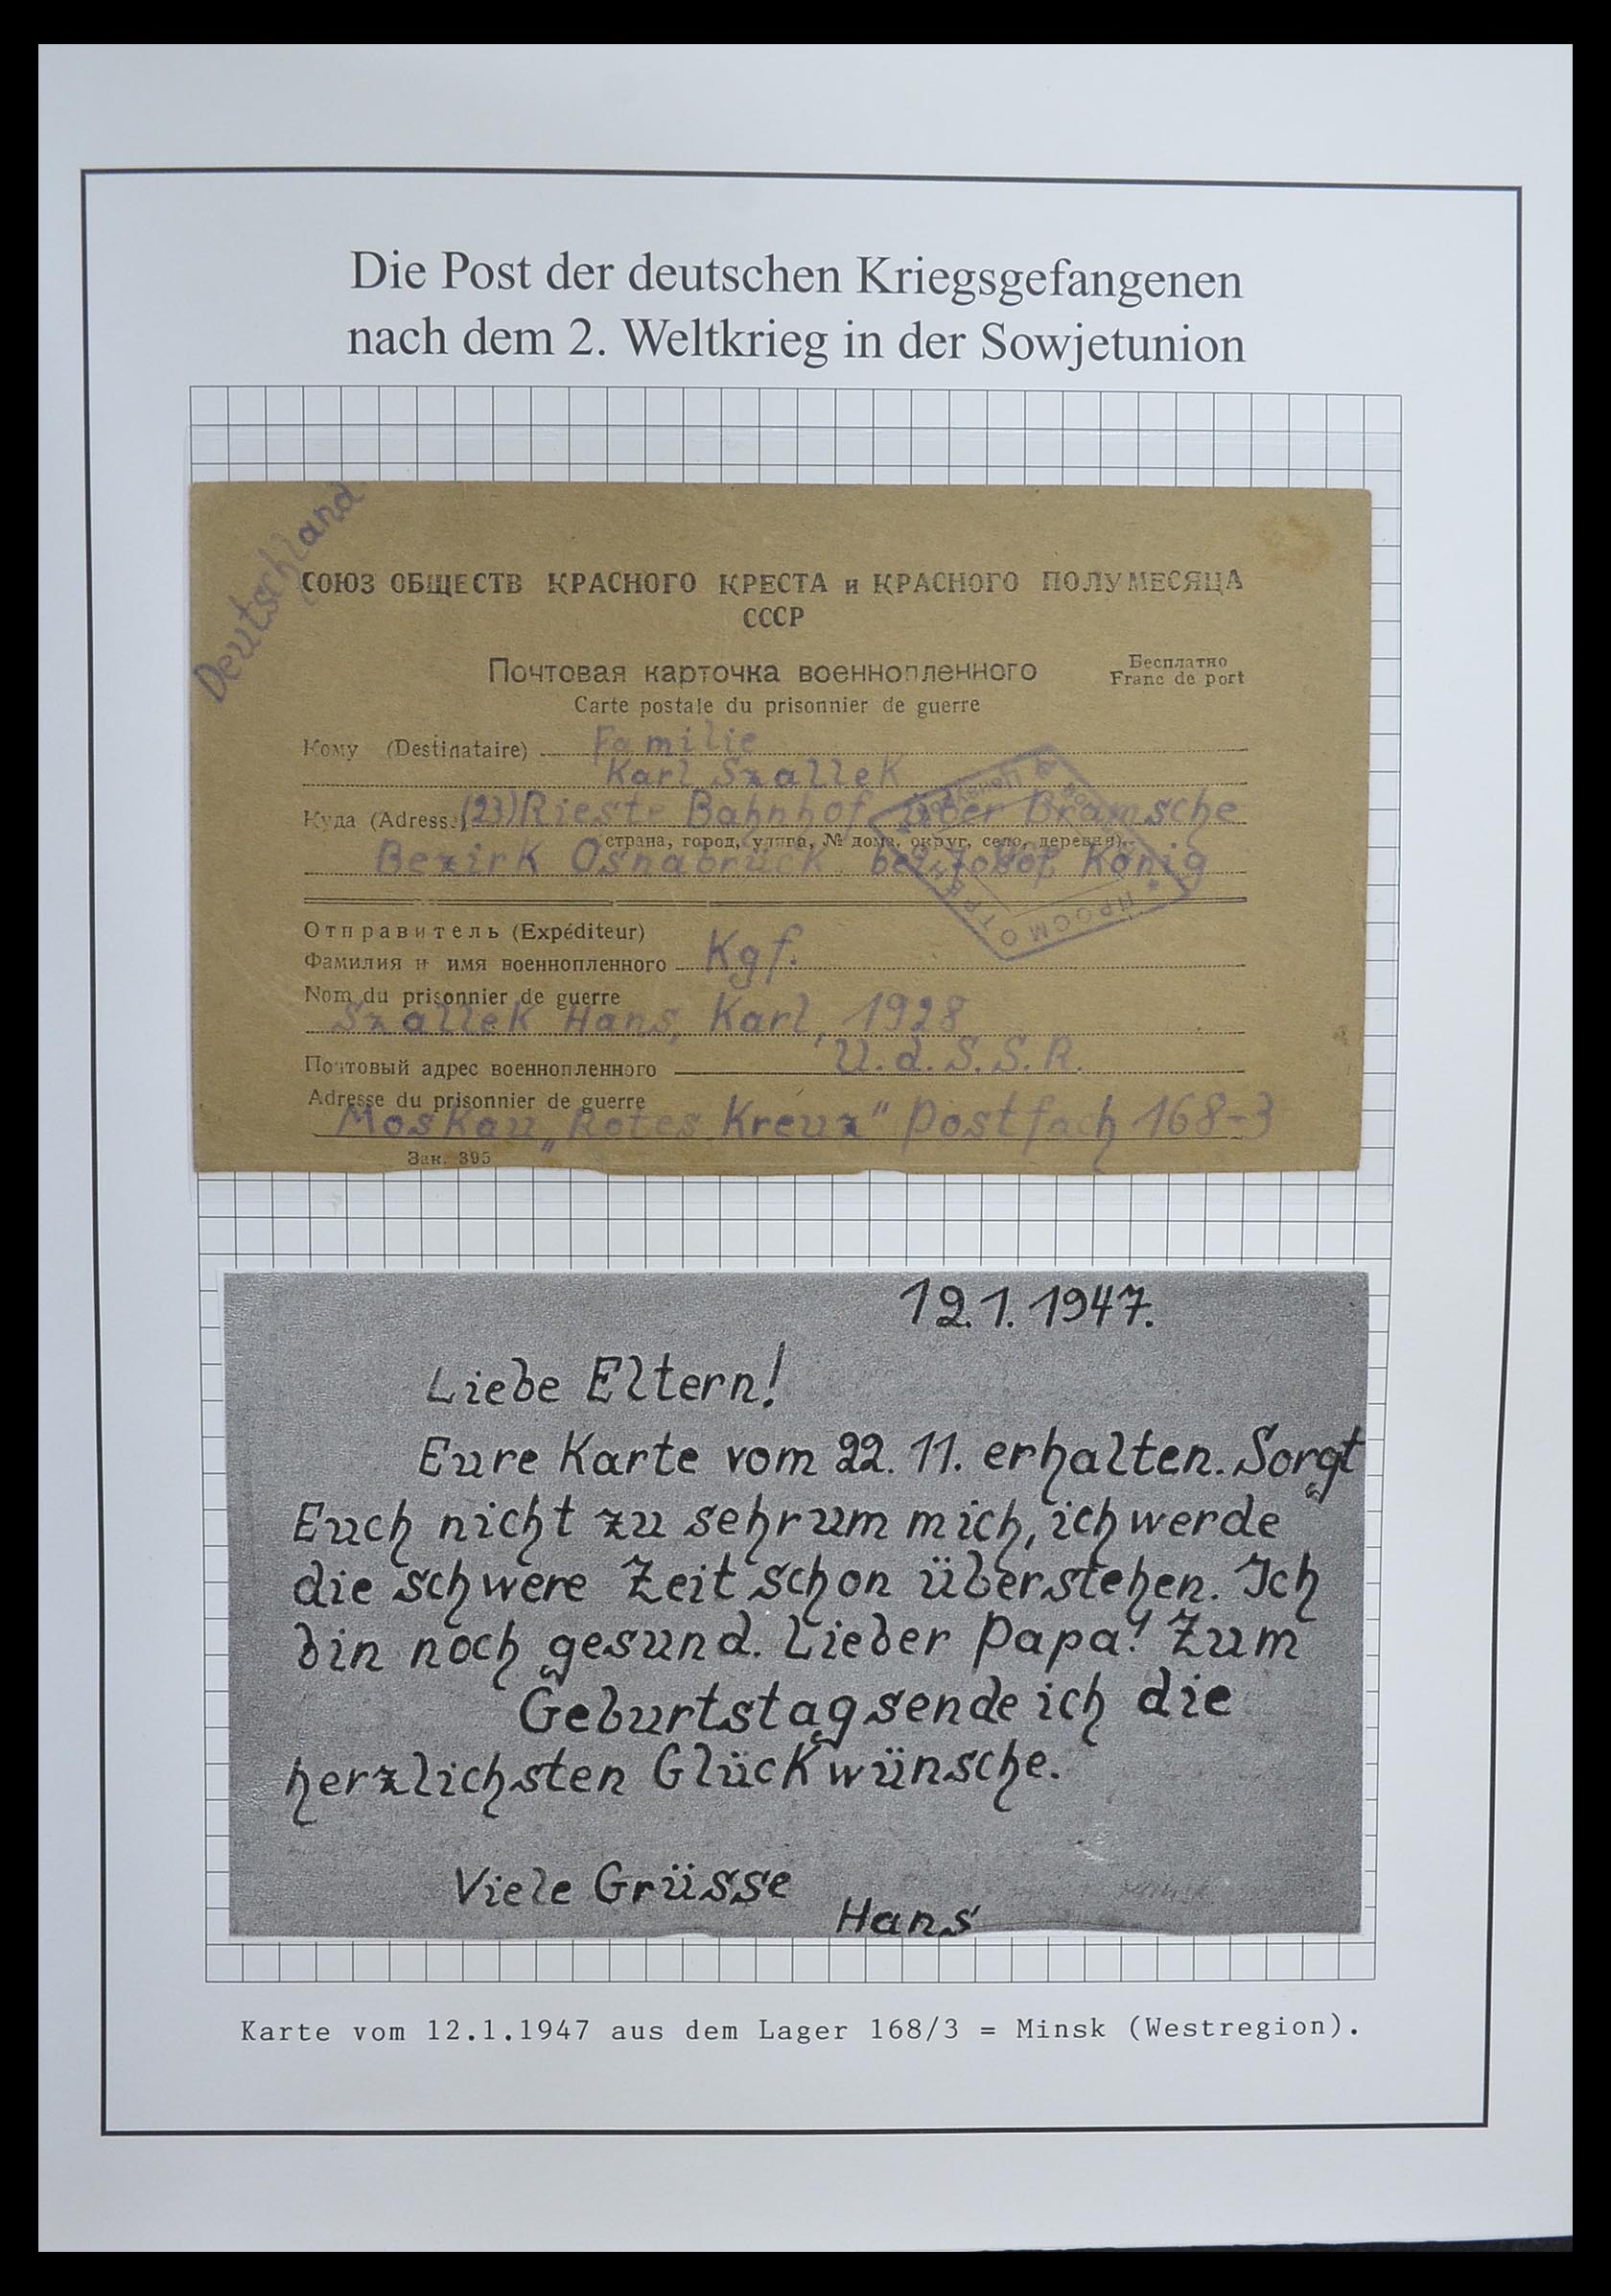 Die Post der deutschen Kriegsgefangenen
nach dem 2. Weltkrieg in der Sowjetunion
Deutschland
СОЮЗ ОБЩЕСТВ КРАСНОГО КРЕСТА и КРАСНОГО ПОЛУМЕСЯЦА
СССР
Почтовая карточка военнопленного
Бесплатно
Franc de port
Carte postale du prisonnier de guerre
Кому (Destinataire) Familie
Karl Szallek
Куда (Adresse) (23) Rieste Bahnhof über Bramsche
страна, город, улица, № дома, округ, село, деревня).
Bezirk Osnabrück bei König
Отправитель (Expéditeur)
Фамилия и имя военнопленного Kgf.
Nom du prisonnier de guerre
Szallek Hans, Karl, 1928
U.d.S.S.R.
Почтовый адрес военнопленного
Adresse du prisonnier de guerre
Moskau „Rotes Kreuz" Postfach 168-3
Зак. 395
12.1.1947.
Liebe Eltern!
Eure Karte vom 22.11. erhalten. Sorgt
Euch nicht zu sehr um mich, ich werde
die schwere Zeit schon überstehen. Ich
bin noch gesund. Lieber Papa! Zum
Geburtstag sende ich die
herzlichsten Glückwünsche.
Viele Grüsse
Hans
Karte vom 12.1.1947 aus dem Lager 168/3 = Minsk (Westregion).